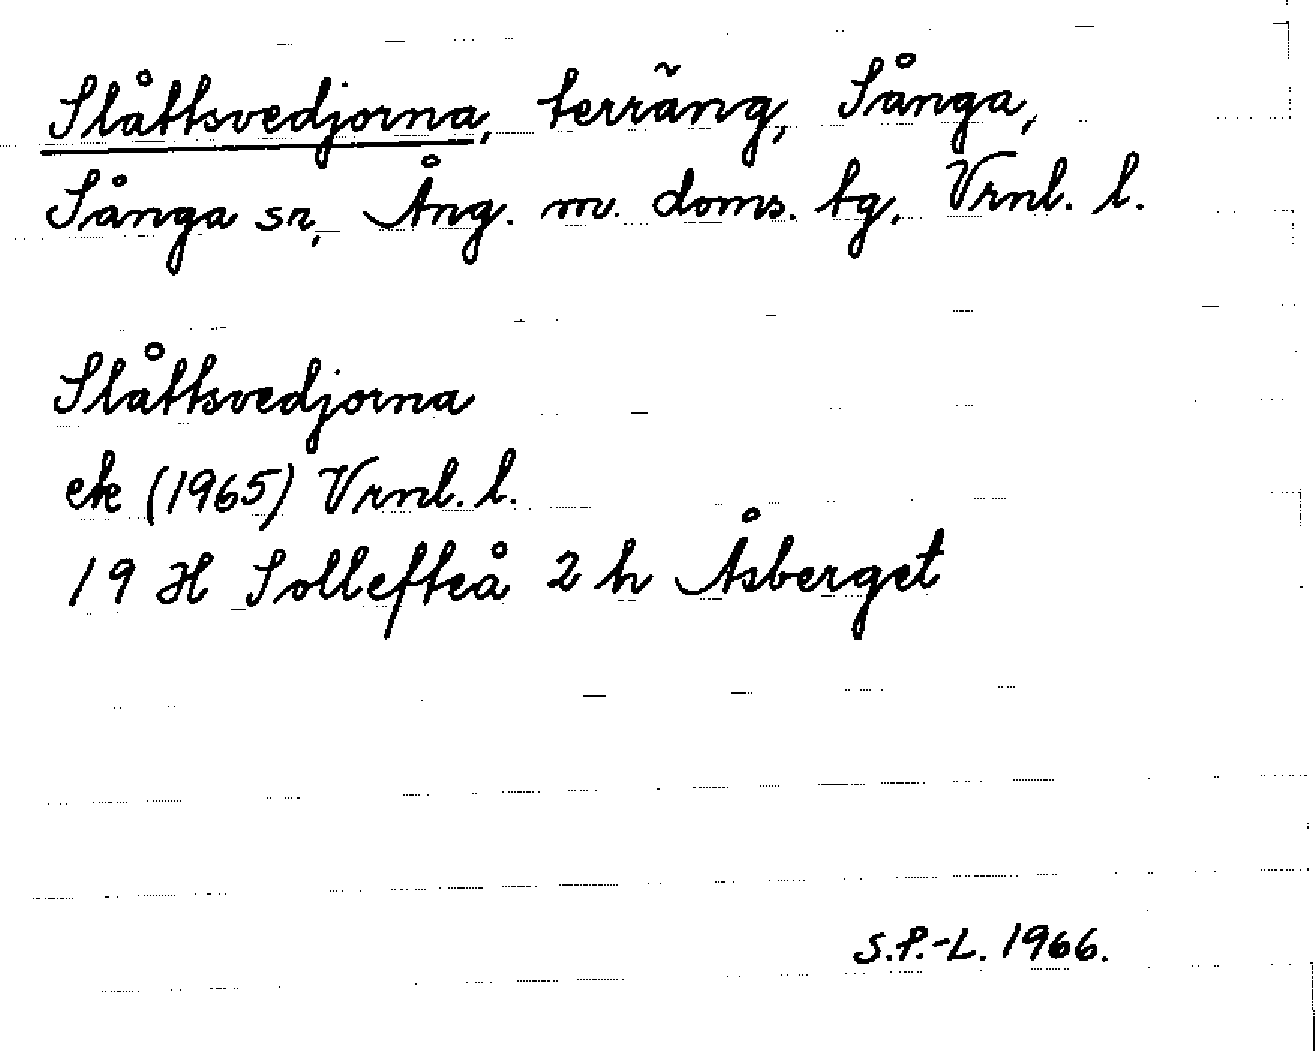 Slåttsvedjorna, terräng, Sånga,
Sånga sn, Ång. m. doms. tg, Vrnl. l.
Slåttsvedjorna
ek (1965) Vrnl. l.
19 H Sollefteå 2 h Åsberget
S.P.-L. 1966.